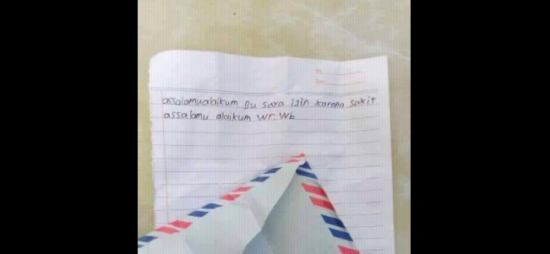 assalamualaikum Bu saya izin karena sakit
assalamu alaikum wr. wb